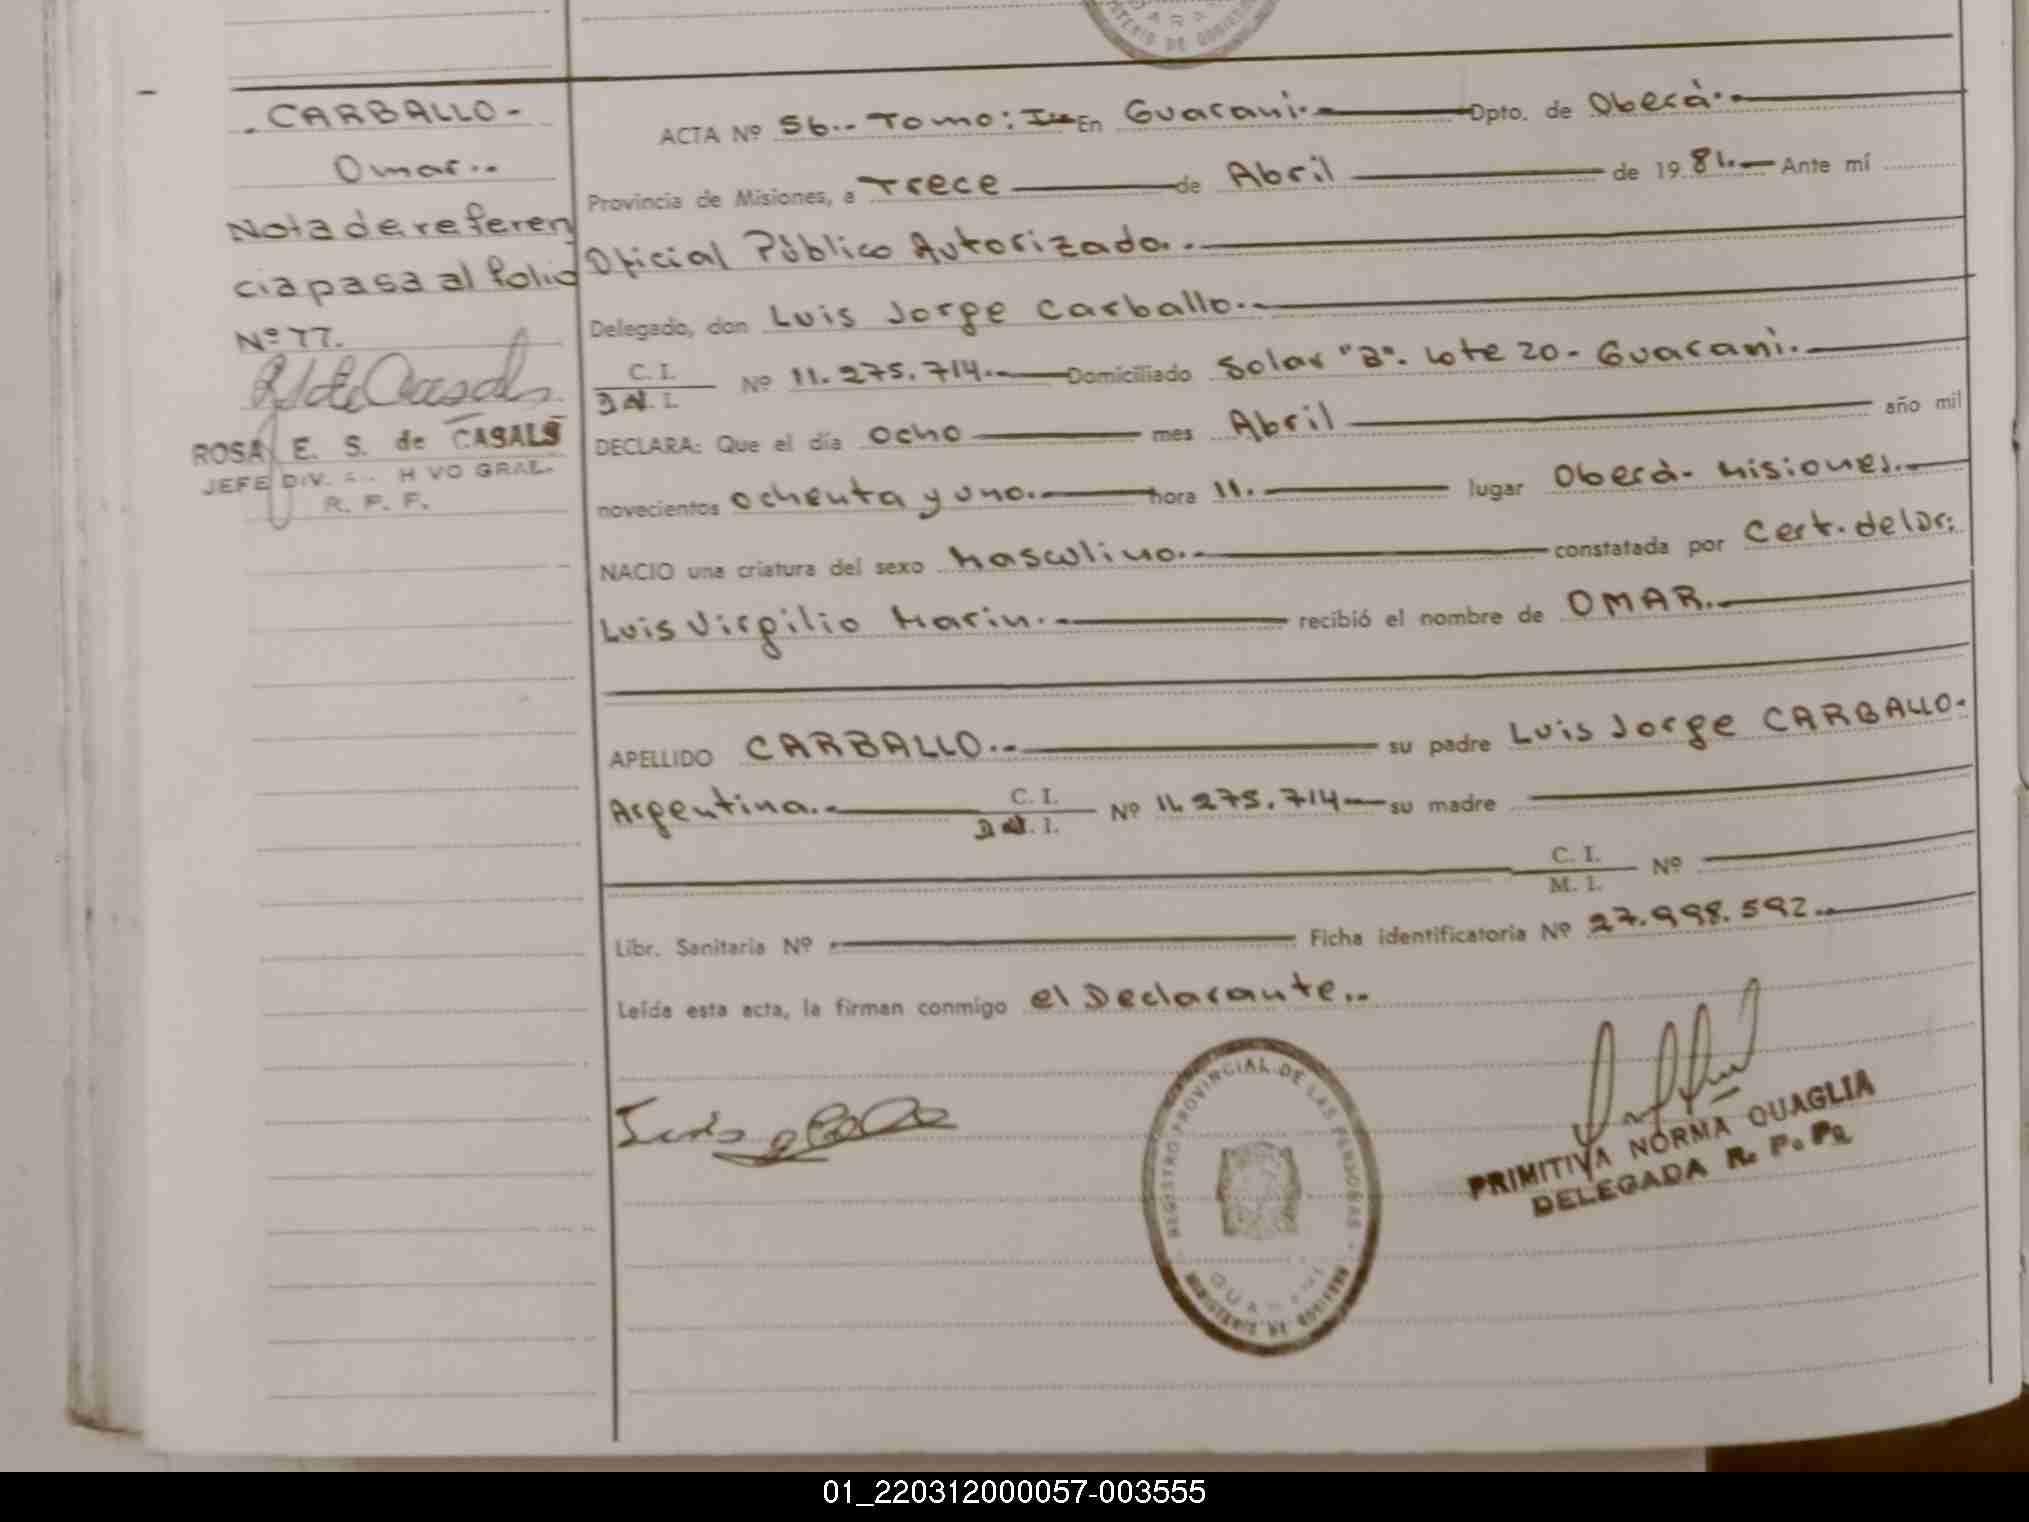 CARBALLO-
Omar..
Nota de referen
cia pasa al folio
Nº 77.
ROSA E. S. de CASALS
JEFE DIV. HIVO GRAL.
R. P. P.
ACTA Nº 56.- Tomo: I En Guarani.- Dpto. de Oberá.-
Provincia de Misiones, a Trece de Abril de 1981.- Ante mí
Oficial Público Autorizada.-
Delegado, don Luis Jorge Carballo.-
C. I.
D.N.I. Nº 11.275.714.- Domiciliado Solar "B". Lote 20- Guarani.-
DECLARA: Que el día ocho mes Abril año mil
novecientos ochenta y uno.- hora 11.- lugar Oberá- Misiones.-
NACIO una criatura del sexo Masculino.- constatada por Cert. del Dr:
Luis Virgilio Marin.- recibió el nombre de OMAR.-
APELLIDO CARBALLO.- su padre Luis Jorge CARBALLO-
Argentina.- C. I.
D.N.I. Nº 11.275.714- su madre
C. I.
M. I. Nº
Libr. Sanitaria Nº Ficha identificatoria Nº 27.998.592.-
Leída esta acta, la firman conmigo el Declarante..
REGISTRO PROVINCIAL DE LAS PERSONAS
GUARANI
MINISTERIO DE GOBIERNO
PRIMITIVA NORMA QUAGLIA
DELEGADA R. P. P.
01_220312000057-003555